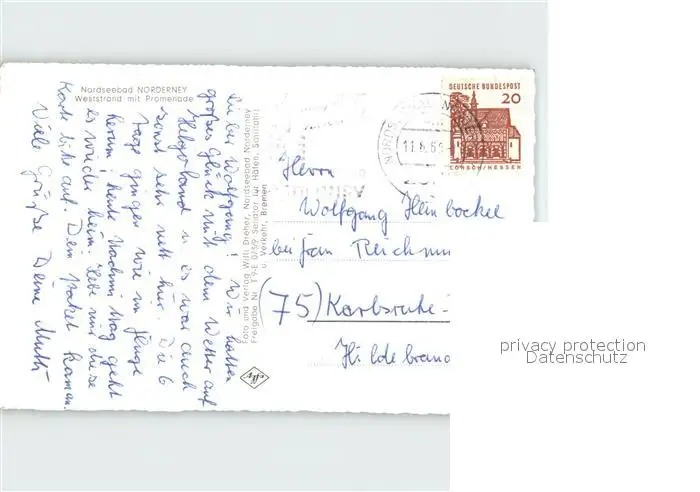 Nordseebad NORDERNEY
Weststrand mit Promenade
Lieber Wolfgang! Wir hatten
großes Glück mit dem Wetter auf
Helgoland u. es war auch
sonst sehr nett hier. Die 6
Tage gingen wie im Fluge
herum; heute Nachmittag geht
es wieder heim. Hebe mir diese
Karte bitte auf. Dein Paket kam an.
Viele Grüße Deine Mutti
Foto und Verlag Willi Dreher, Nordseebad Norderney
Freigabe Nr. T 9-E 0/5/9 Senator für Häfen, Schiffahrt
u. Verkehr, Bremen
DEUTSCHE BUNDESPOST
20
LORSCH/HESSEN
11.8.65
Herrn
Wolfgang Heinbockel
bei Frau Reichmu
(75) Karlsruhe-
Hildebrand
privacy protection
Datenschutz